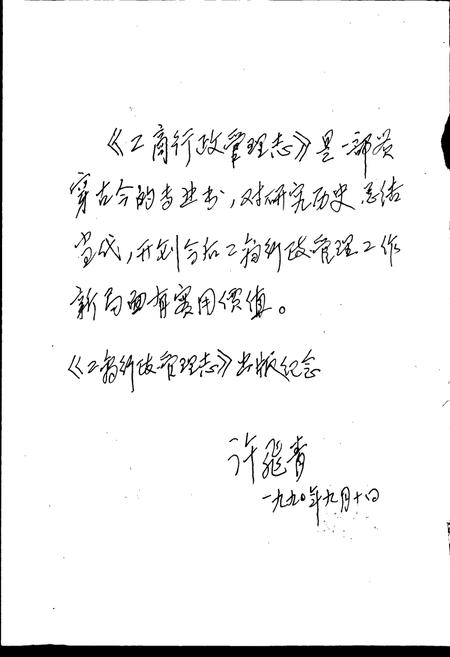 《工商行政管理志》是一部贯
穿古今的专业书，对研究历史总结
当代，开创今后工商行政管理工作
新局面有实用價值。
《工商行政管理志》出版纪念
许飛青
一九九〇年九月十日